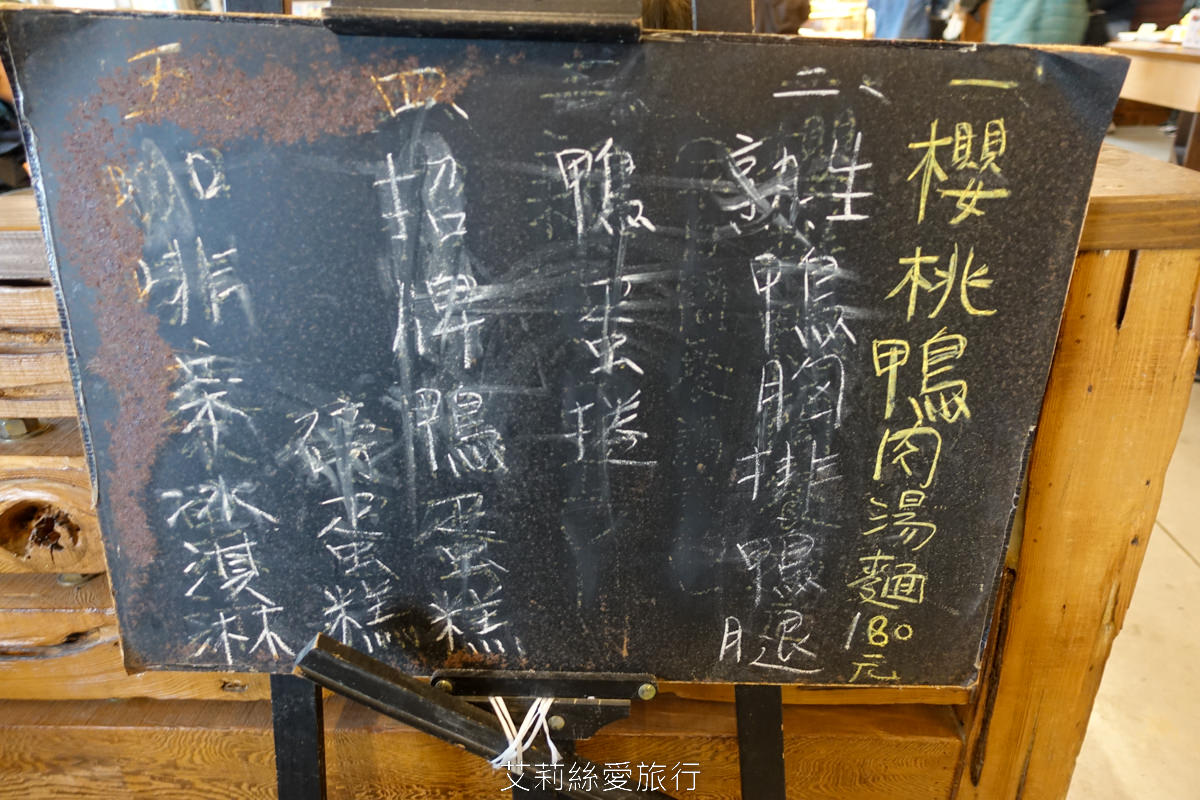 一櫻桃鴨肉湯麵180元
二、生熟鴨胸排鴨腿
三、鴨蛋捲
四、招牌鴨蛋糕
磅蛋糕
五咖啡茶冰淇淋
艾莉絲愛旅行